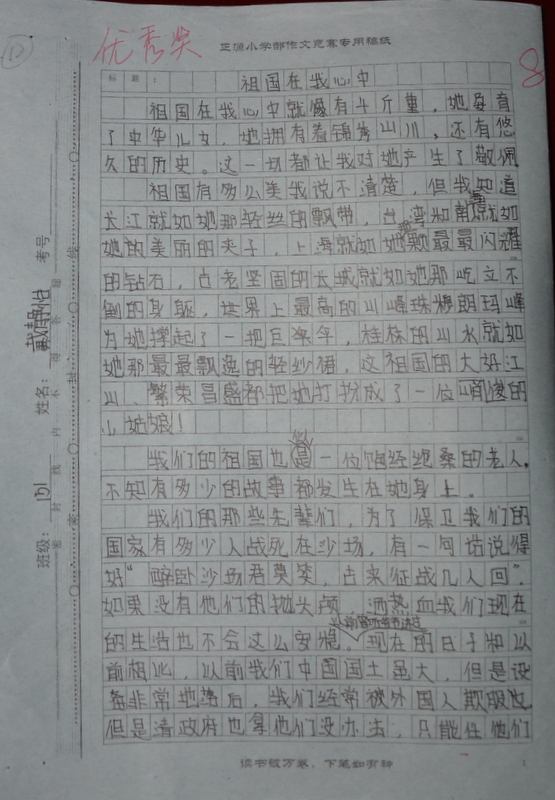 12
优秀奖
正源小学部作文竞赛专用稿纸
8
标题：
祖国在我心中
祖国在我心中就像有千斤重，她孕育
了中华儿女，地拥有着锦秀山川，还有悠
久的历史。这一切都让我对地产生了敬佩
祖国有多么美我说不清楚，但我知道
长江就如她那轻丝的飘带，台湾和就如
她的美丽的夹子，上海就如她颗最最闪耀
的钻石，古老坚固的长城就如她那屹立不
倒的身躯，世界上最高的山峰珠穆朗玛峰
为她撑起了一把巨伞，桂林的山水就如
她那最最飘逸的轻纱裙，这祖国的大好江
山、繁荣昌盛都把她打扮成了一位俏的
小姑娘！
我们的祖国也是一位饱经沧桑的老人，
不知有多少的故事都发生在她身上。
我们的那些先辈们，为了保卫我们的
国家有多少人战死在沙场，有一句话说得
好“醉卧沙场君莫笑，古来征战几人回”。
如果没有他们的抛头颅，洒热血我们现在
的生活也不会这么安稳。现在的日子和以
前相比，以前我们中国国土虽大，但是设
备非常地落后，我们经常被外国人欺服
但是清政府也拿他们没办法，只能任他们
读书破万卷，下笔如有神
1
班级：
姓名：戴静怡
考号
密封线内不得答题